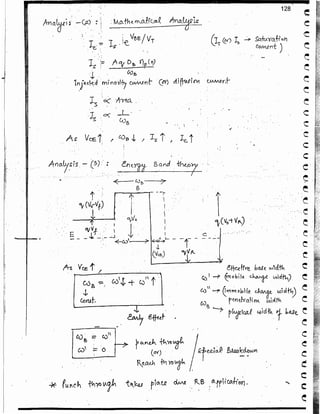 128
Analysis - (a) : Mathematical Analysis
I_E = I_S e^{V_BE/V_T} (I_S (or) I_o → Saturation Current)
I_S = A q D_B n_p(o) / ω_B
Injected minority current (or) diffusion current
I_S ∝ Area
I_S ∝ 1/ω_B
As V_CE ↑ , ω_B ↓ , I_S ↑ , I_E ↑
Analysis - (b) : Energy Band theory
ω_B
B
q(V_o-V_f)
qV_o
q(V_o+V_R)
E
qV_f
ω'
(V_R)
qV_R
C
As V_CE ↑ ,
ω_B = ω'↓ + ω''↑
↓
Const.
Early Effect.
Effective base width
ω' → (mobile charge width)
ω'' → (immobile charge width)
penetration width
ω_B → physical width of base
ω_B = ω''
ω' = 0
punch through
(or)
Reach through
Special Breakdown
* Punch through takes place due R.B application.